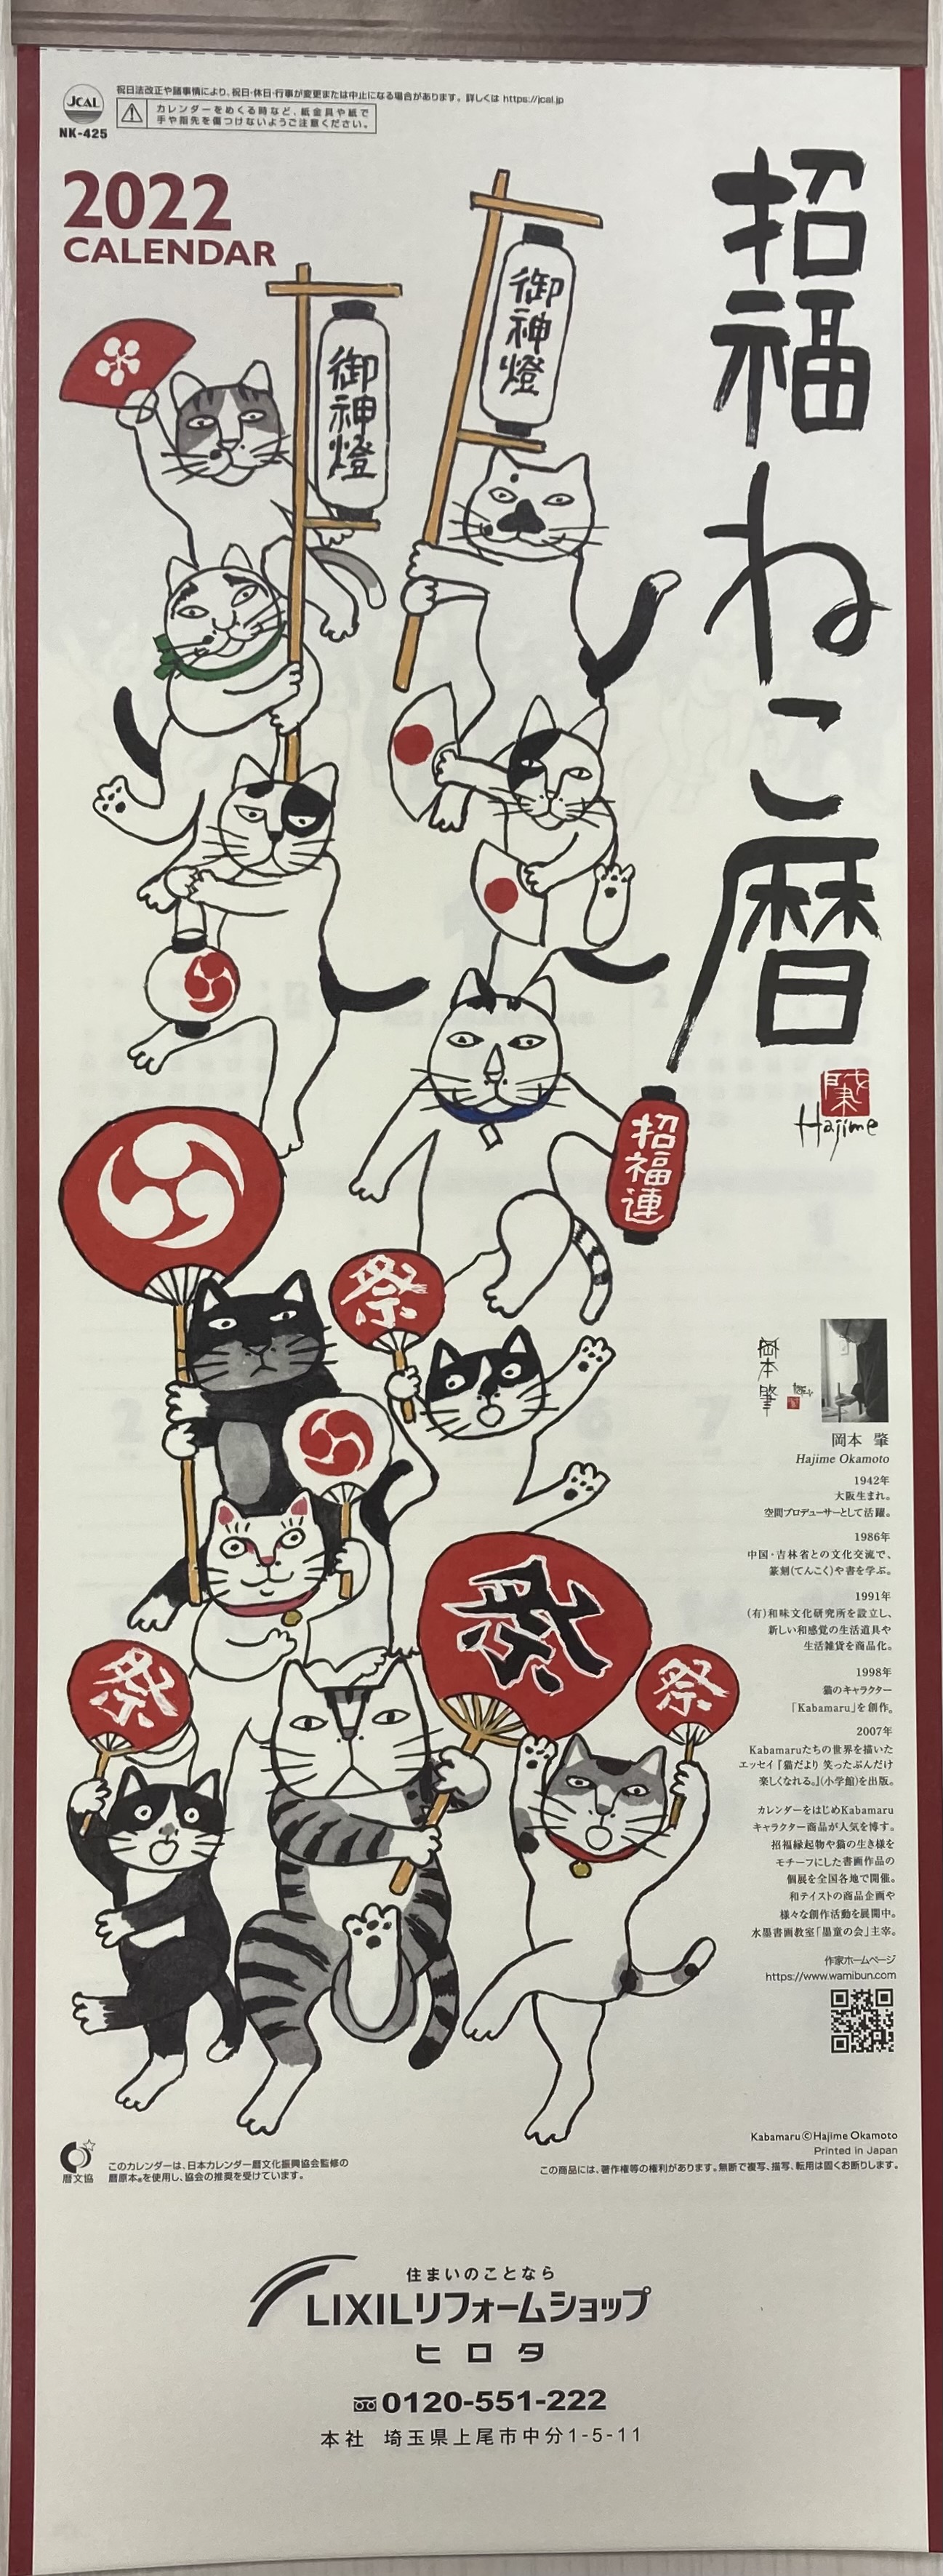 JCAL
NK-425
祝日法改正や諸事情により、祝日・休日・行事が変更または中止になる場合があります。詳しくは https://jcal.jp
カレンダーをめくる時など、紙金具や紙で
手や指先を傷つけないようご注意ください。
2022
CALENDAR
招福ねこ暦
Hajime
御神燈
御神燈
招福連
祭
祭
祭
祭
岡本肇
岡本 肇
Hajime Okamoto
1942年
大阪生まれ。
空間プロデューサーとして活躍。
1986年
中国・吉林省との文化交流で、
篆刻(てんこく)や書を学ぶ。
1991年
(有)和味文化研究所を設立し、
新しい和感覚の生活道具や
生活雑貨を商品化。
1998年
猫のキャラクター
「Kabamaru」を創作。
2007年
Kabamaruたちの世界を描いた
エッセイ『猫だより 笑ったぶんだけ
楽しくなれる。』(小学館)を出版。
カレンダーをはじめKabamaru
キャラクター商品が人気を博す。
招福縁起物や猫の生き様を
モチーフにした書画作品の
個展を全国各地で開催。
和テイストの商品企画や
様々な創作活動を展開中。
水墨書画教室「墨童の会」主宰。
作家ホームページ
https://www.wamibun.com
Kabamaru©Hajime Okamoto
Printed in Japan
この商品には、著作権等の権利があります。無断で複写、描写、転用は固くお断りします。
暦文協
このカレンダーは、日本カレンダー暦文化振興協会監修の
暦原本®を使用し、協会の推奨を受けています。
住まいのことなら
LIXILリフォームショップ
ヒロタ
0120-551-222
本社 埼玉県上尾市中分1-5-11